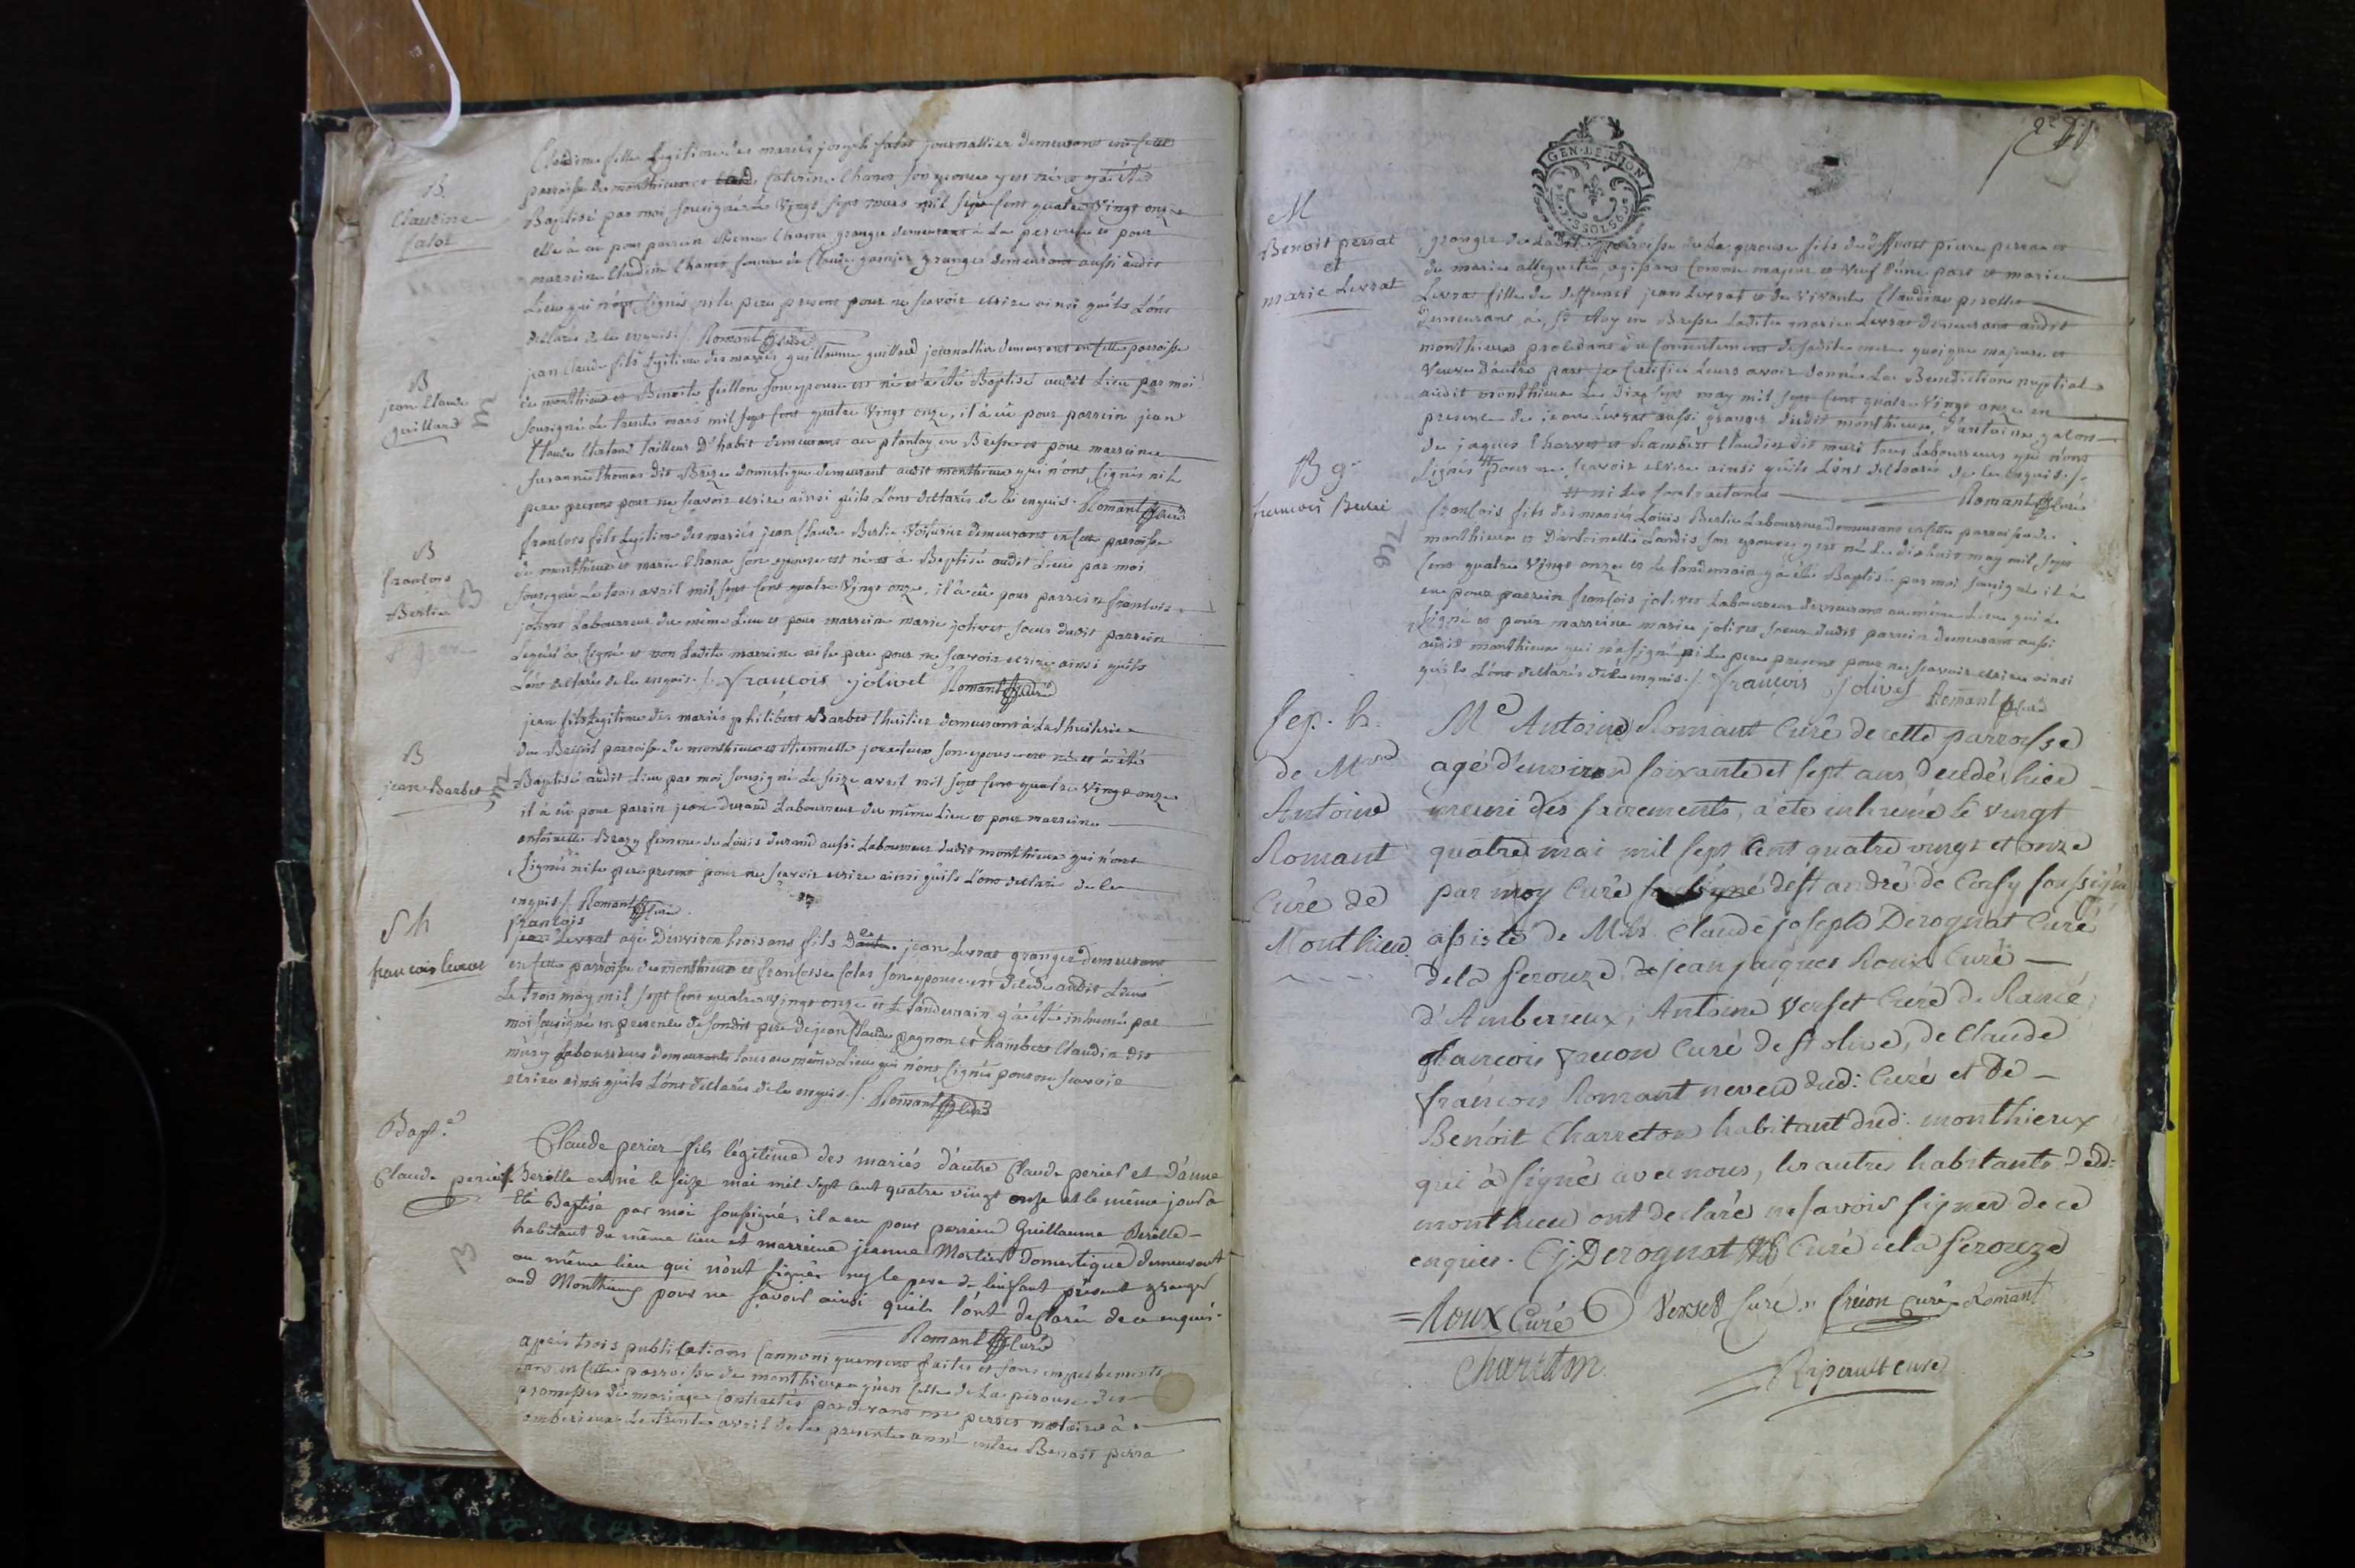 B
Claudine
falot
Claudine fille Legitime des mariés joseph falot journallier demeurant en cette
parroisse de monthieux et Caterine Chanet son epouse y est née et y a été
Baptisé par moi sousigné Le Vingt sept mars mil sept cent quatre Vingt onze
elle à eu pour parrein etienne Chanet granger demeurant à La perouse et pour
marreine Claudine Chanet femme de Claude garnier granger demeurant aussi audit
Lieu qui n'ont signés ni le pere present pour ne scavoir ecrire ainsi qu'ils L'ont
declarés de ce enquis /. Romant Curé
B
jean Claude
guillard
jean Claude fils Legitime des mariés guillaume guillard journallier demeurant en cette parroisse
de monthieux et Benoite feillon son epouse est né et a été Baptisé audit Lieu par moi
sousigné Le trente mars mil sept cent quatre Vingt onze, il à eû pour parrein jean
Claude tailleur D'habit demeurant au plantay en Bresse et pour marreine
Susanne thomas dit domestique demeurant audit monthieux qui n'ont signés ni le
pere present pour ne scavoir ecrire ainsi qu'ils L'ont declarés de ce enquis. Romant Curé
B
françois
Berlie
francois fils Legitime des mariés jean Claude Berlie Voiturier demeurant en cette parroisse
de monthieux et marie Chana son epouse est né et à Baptisé audit Lieu par moi
sousigné Le trois avril mil sept cent quatre Vingt onze, il à eû pour parrein francois
jolivet Laboureur du même Lieu et pour marreine marie jolivet soeur dudit parrein
Lequel à signé et non Ladite marreine ni le pere pour ne scavoir ecrire ainsi qu'ils
L'ont declarés de ce enquis /. françois jolivet Romant Curé
B
jean Barbet
jean fils Legitime des mariés philibert Barbet thuilier demeurant à La thuilerie
du Breuil parroisse de monthieux et etiennette son epouse est né et à été
Baptisé audit Lieu par moi sousigné Le seize avril mil sept cent quatre Vingt onze
il à eû pour parrein jean durand Laboureur du même Lieu et pour marreine
antoinette femme de Loüis durand aussi Laboureur dudit monthieux qui n'ont
signés ni le pere present pour ne scavoir ecrire ainsi qu'ils L'ont declaré de ce
enquis /. Romant Curé
Sh
francois levrat
francois
jean Levrat agé D'environ trois ans fils De jean Levrat granger demeurant
en cette parroisse de monthieux et francoise falot son epouse est decedé audit Lieu
Le trois may mil sept cent quatre vingt onze et Le landemain y à été inhumé par
moi sousigné en presence de sondit pere de jean Claude pagnon et humbert Claudin dit
mury Laboureurs demeurants tous au même Lieu qui n'ont signés pour ne scavoir
ecrire ainsi qu'ils L'ont declarés de ce enquis /. Romant Curé
Bapt.e
Claude perier
Claude perier fils légitime des mariés d'autre Claude perier et D'anne
Berolle est né le seize mai mil sept cent quatre vingt onze et le même jour a
Eté Baptisé par moi soussigné, il a eu pour parrein Guillaume Berolle
habitant du même lieu et marreine jeanne Mortier Domestique demeurant
au même lieu qui n'ont signés ny le pere de l'enfant présent granger
aud Monthieux pour ne scavoir ainsi qu'ils l'ont declaré de ce enquis.
Romant Curé
après trois publications cannoniquement faites et sans empechements
tant en cette parroisse de monthieux qu'en celle de La perouse des
promesses de mariage contractés pardevant me perret notaire à
amberieux Le trente avril de La presente anné entre Benoit perra
GEN·DE DION
M
Benoit perrat
et
marie Levrat
granger de Ladite parroisse de La perouse fils de deffunt pierre perra et
de marie allegatte, agissant comme majeur et Veuf D'une part et marie
Levrat fille de deffunct jean Levrat et de Vivante Claudine pirollet
demeurant à St. Aoy en Bresse Ladite marie Levrat demeurant audit
monthieux procedant du consentement de sadite mere quoique majeure et
Veuve D'autre part je certifie Leurs avoir donné La Benediction nuptiale
audit monthieux Le dix sept may mil sept cent quatre Vingt onze en
presence de jean Levrat aussi granger dudit monthieux, D'antoine galon
de jaques Charvet et humbert Claudin dit muri tous Laboureurs qui n'ont
signés # pour ne scavoir ecrire ainsi qu'ils L'ont declarés de ce enquis /.
# ni Les contractants Romant Curé
B g.
francois Berlié
francois fils des mariés Loüis Berlie Laboureur demeurant en cette parroisse de
monthieux et D'antoinette Landis son epouse y est né Le dix huit may mil sept
cent quatre Vingt onze et Le landemain y à été Baptisé par moi sousigné il à
eu pour parrein francois jolivet Laboureur demeurant au même Lieu qui à
signé et pour marreine marie jolivet soeur dudit parrein demeurant aussi
audit monthieux qui n'a signé ni Le pere present pour ne scavoir ecrire ainsi
qu'ils L'ont declarés de ce enquis /. François Jolivet Romant Curé
Sep. h.
de Mre
Antoine
Romant
Curé de
Monthieu
Me Antoine Romant Curé de cette parroisse
agé d'environ soixante et sept ans, decedé hier
muni des sacrements, a été inhumé le vingt
quatre mai mil sept Cent quatre vingt et onze
par moy Curé de st andré de Corsy soussigné
assisté de Mrs. Claude joseph Derognat Curé
de la Perouze, de jean jacques Roux Curé
d'Amberieux, Antoine Verset Curé de Rancé,
francois Curé de st olive, de Claude
françois Romant neveu dud: Curé et De
Benoit Charreton habitant dud: monthieux
qui à signés avec nous, les autres habitants dud:
monthieu ont declaré ne savoir signer de ce
enquis. Cj. Derognat Curé de la Perouze
Roux Curé Verset Curé Curé Romant
Charreton Ripault Curé